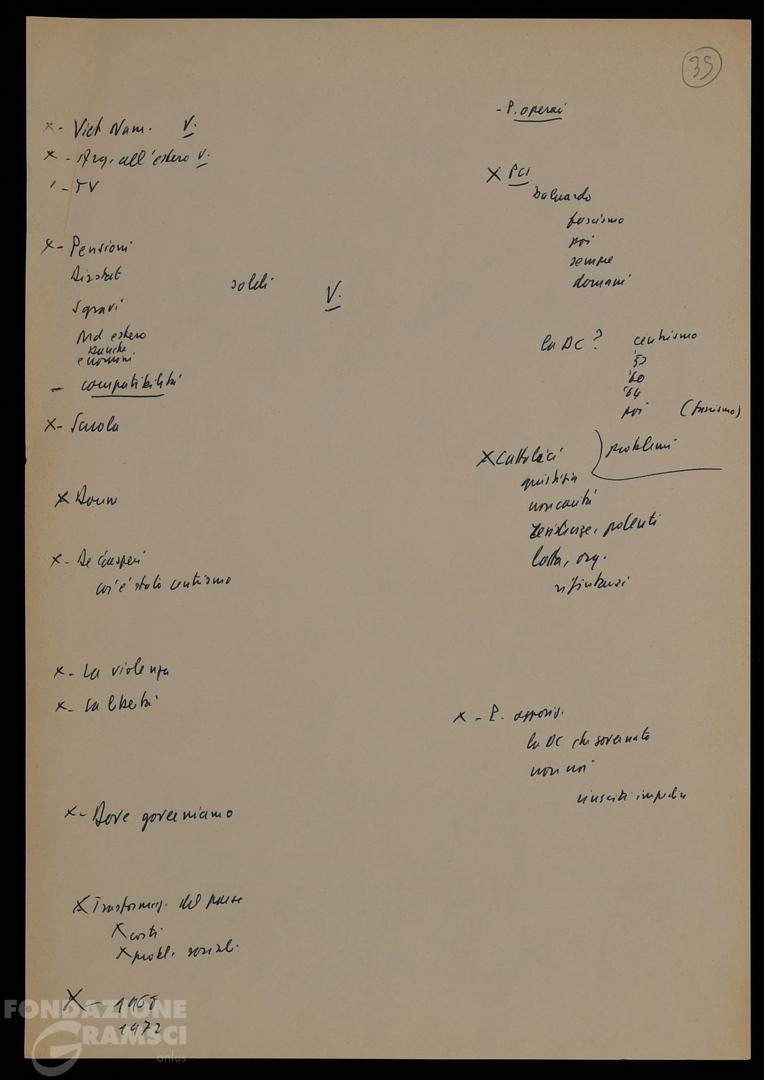 35
x - Viet Nam. V.
x - Arg. all'estero V.
' - TV
x - Pensioni
soldi
V.
Sgravi
Md estero
Banche
- compatibilità
x - Scuola
x Donne
x - De Gasperi
cos'è stato centrismo
x - La violenza
x - La libertà
x - Dove governiamo
x Trasformaz. del paese
x costi
x probl. sociali
X - 1968
1972
- P. operai
X PCI
baluardo
fascismo
poi
sempre
domani
la DC? centrismo
'53
'60
'64
poi (fascismo)
X Cattolici ) problemi
giustizia
non carità
Resistenze, potenti
lotta, org.
x - P. opposiz.
la DC che governato
non noi
riusciti impedire
FONDAZIONE
GRAMSCI
onlus